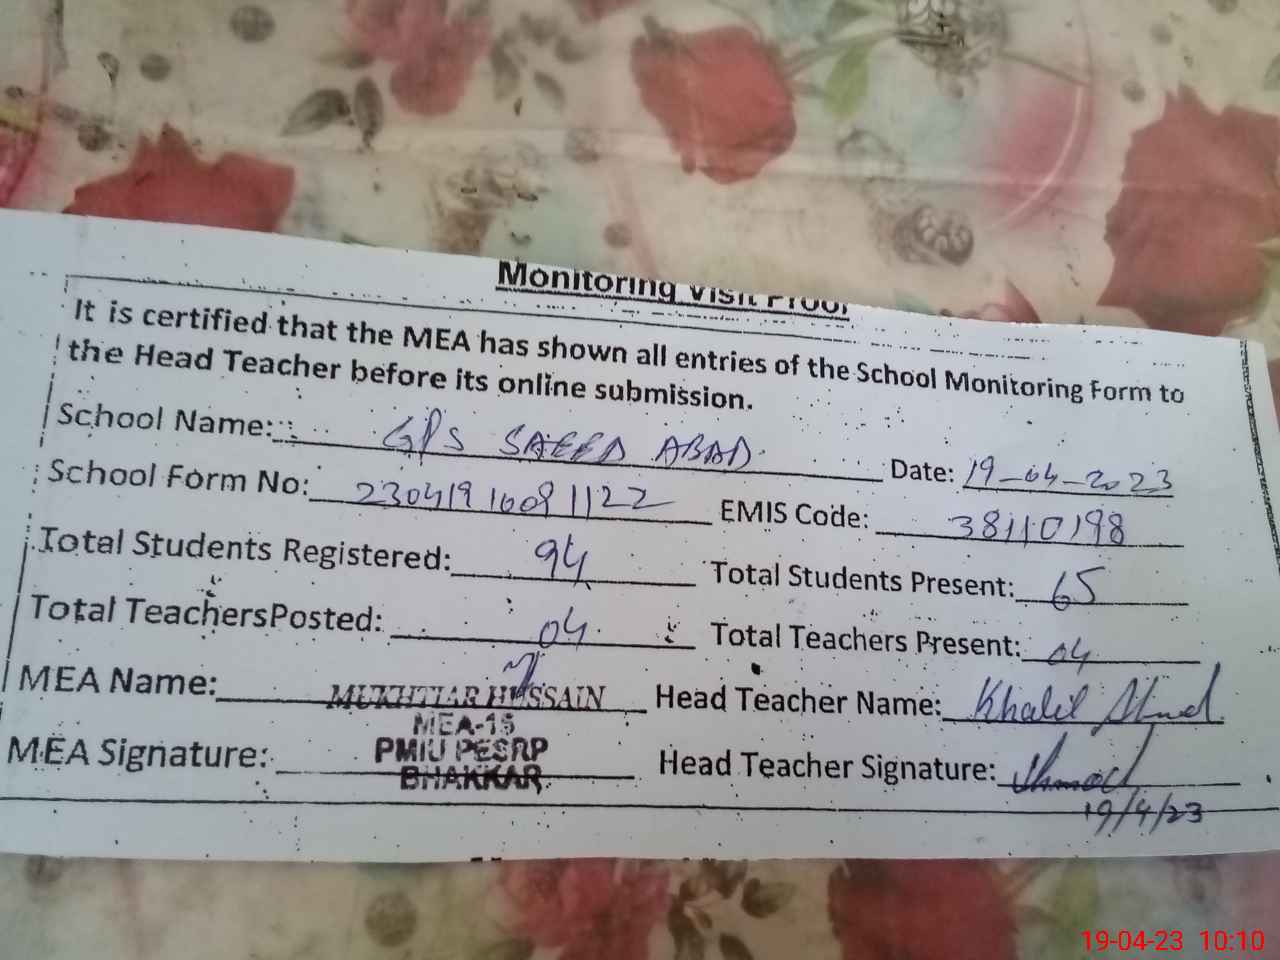 Monitoring Visit Proof
It is certified that the MEA has shown all entries of the School Monitoring Form to
the Head Teacher before its online submission.
School Name: GPS SAEED ABAD Date: 19-04-2023
School Form No: 23041910091122 EMIS Code: 38110198
Total Students Registered: 94 Total Students Present: 65
Total TeachersPosted: 04 Total Teachers Present: 04
MEA Name: MUKHTIAR HUSSAIN Head Teacher Name: Khalil Ahmad
MEA-15
MEA Signature: PMIU PESRP Head Teacher Signature: Ahmad
BHAKKAR
19/4/23
19-04-23 10:10